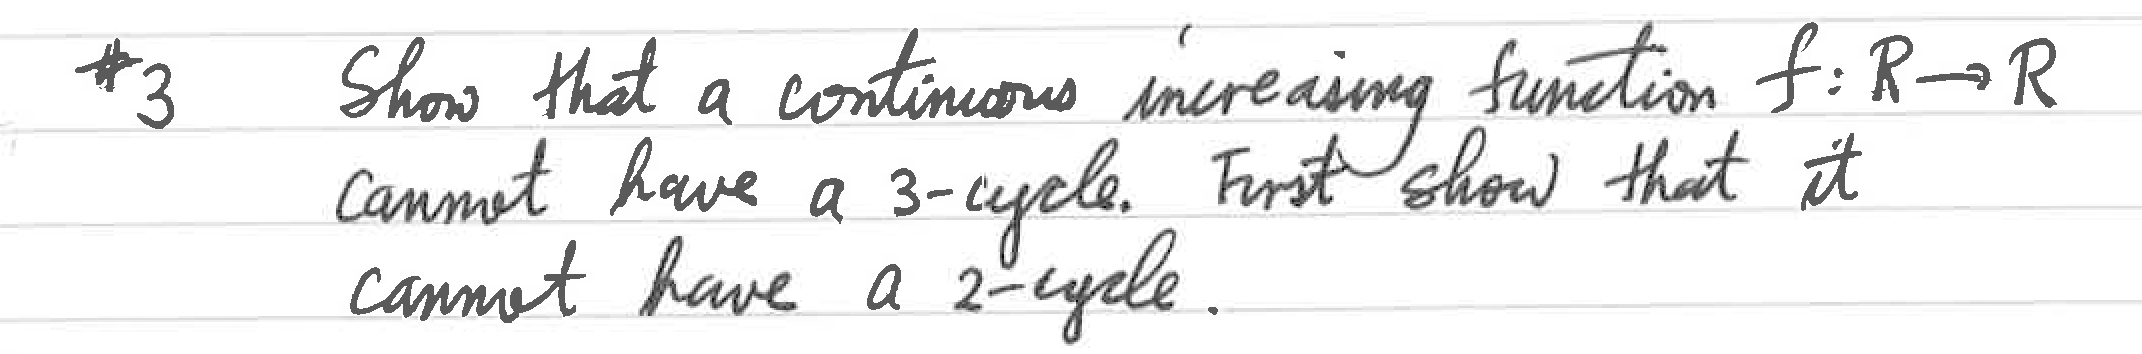 #3 Show that a continuous increasing function f: R→R
cannot have a 3-cycle. First show that it
cannot have a 2-cycle.